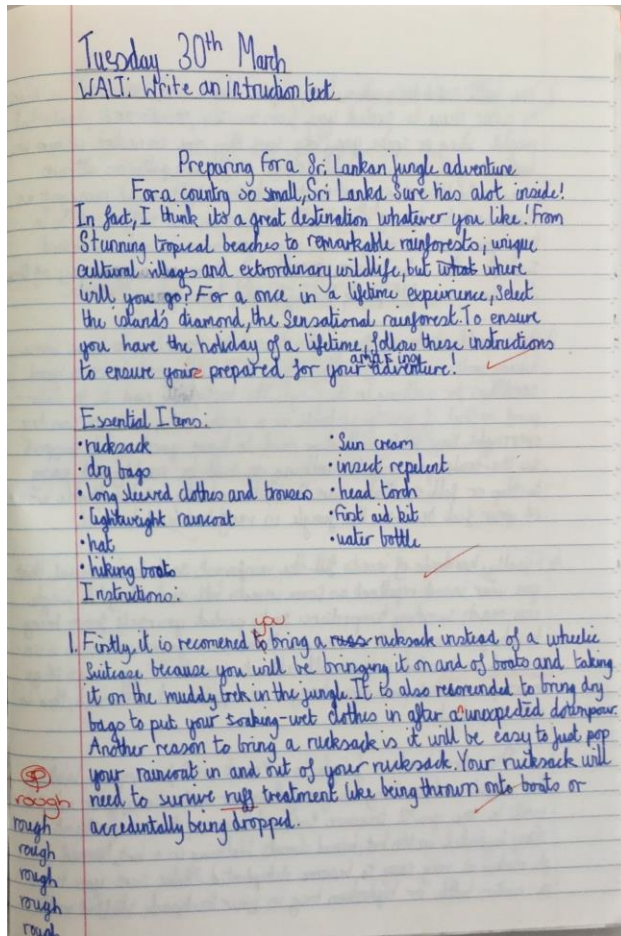 Tuesday 30th March
WALT: Write an intruction text
Preparing for a Sri Lankan jungle adventure
For a country so small, Sri Lanka sure has alot inside!
In fact, I think its a great destination whatever you like! From
Stunning tropical beaches to remarkable rainforests; unique
cultural villags and extrordinary wildlife, but what where
will you go? For a once in a lifetime expeirence, select
the island's diamond, the sensational rainforest. To ensure
you have the holiday of a lifetime, follow these instructions
amazing
to ensure youre prepared for your adventure!
Essential Items:
• rucksack
• dry bags
• long sleeved clothes and trousers
• lightweight raincoat
• hat
• hiking boots
• Sun cream
• insect repelent
• head torch
• first aid kit
• water bottle
Instructions:
you
1. Firstly, it is recomened to bring a rucksack instead of a wheelie
Suitcase because you will be bringing it on and of boats and taking
it on the muddy trek in the jungle. It to also recomended to bring dry
bags to put your soaking-wet clothes in after a unexpected downpour.
Another reason to bring a rucksack is it will be easy to just pop
your raincoat in and out of your rucksack. Your rucksack will
need to survive ruff treatment like being thrown onto boats or
accedentally being dropped.
sp
rough
rough
rough
rough
rough
rough